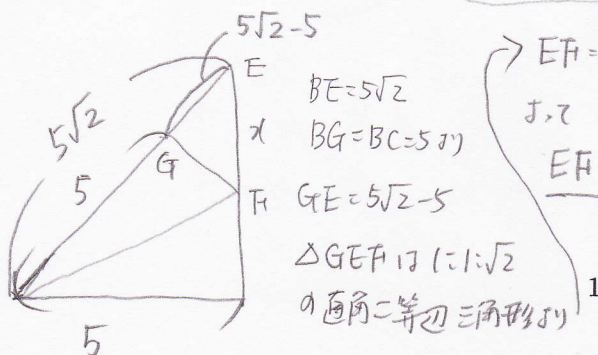 5√2-5
E
5√2
x
G
5
F
5
BE=5√2
BG=BC=5より
GE=5√2-5
△GEFは1:1:√2
の直角二等辺三角形より
EF=
よって
EF
1